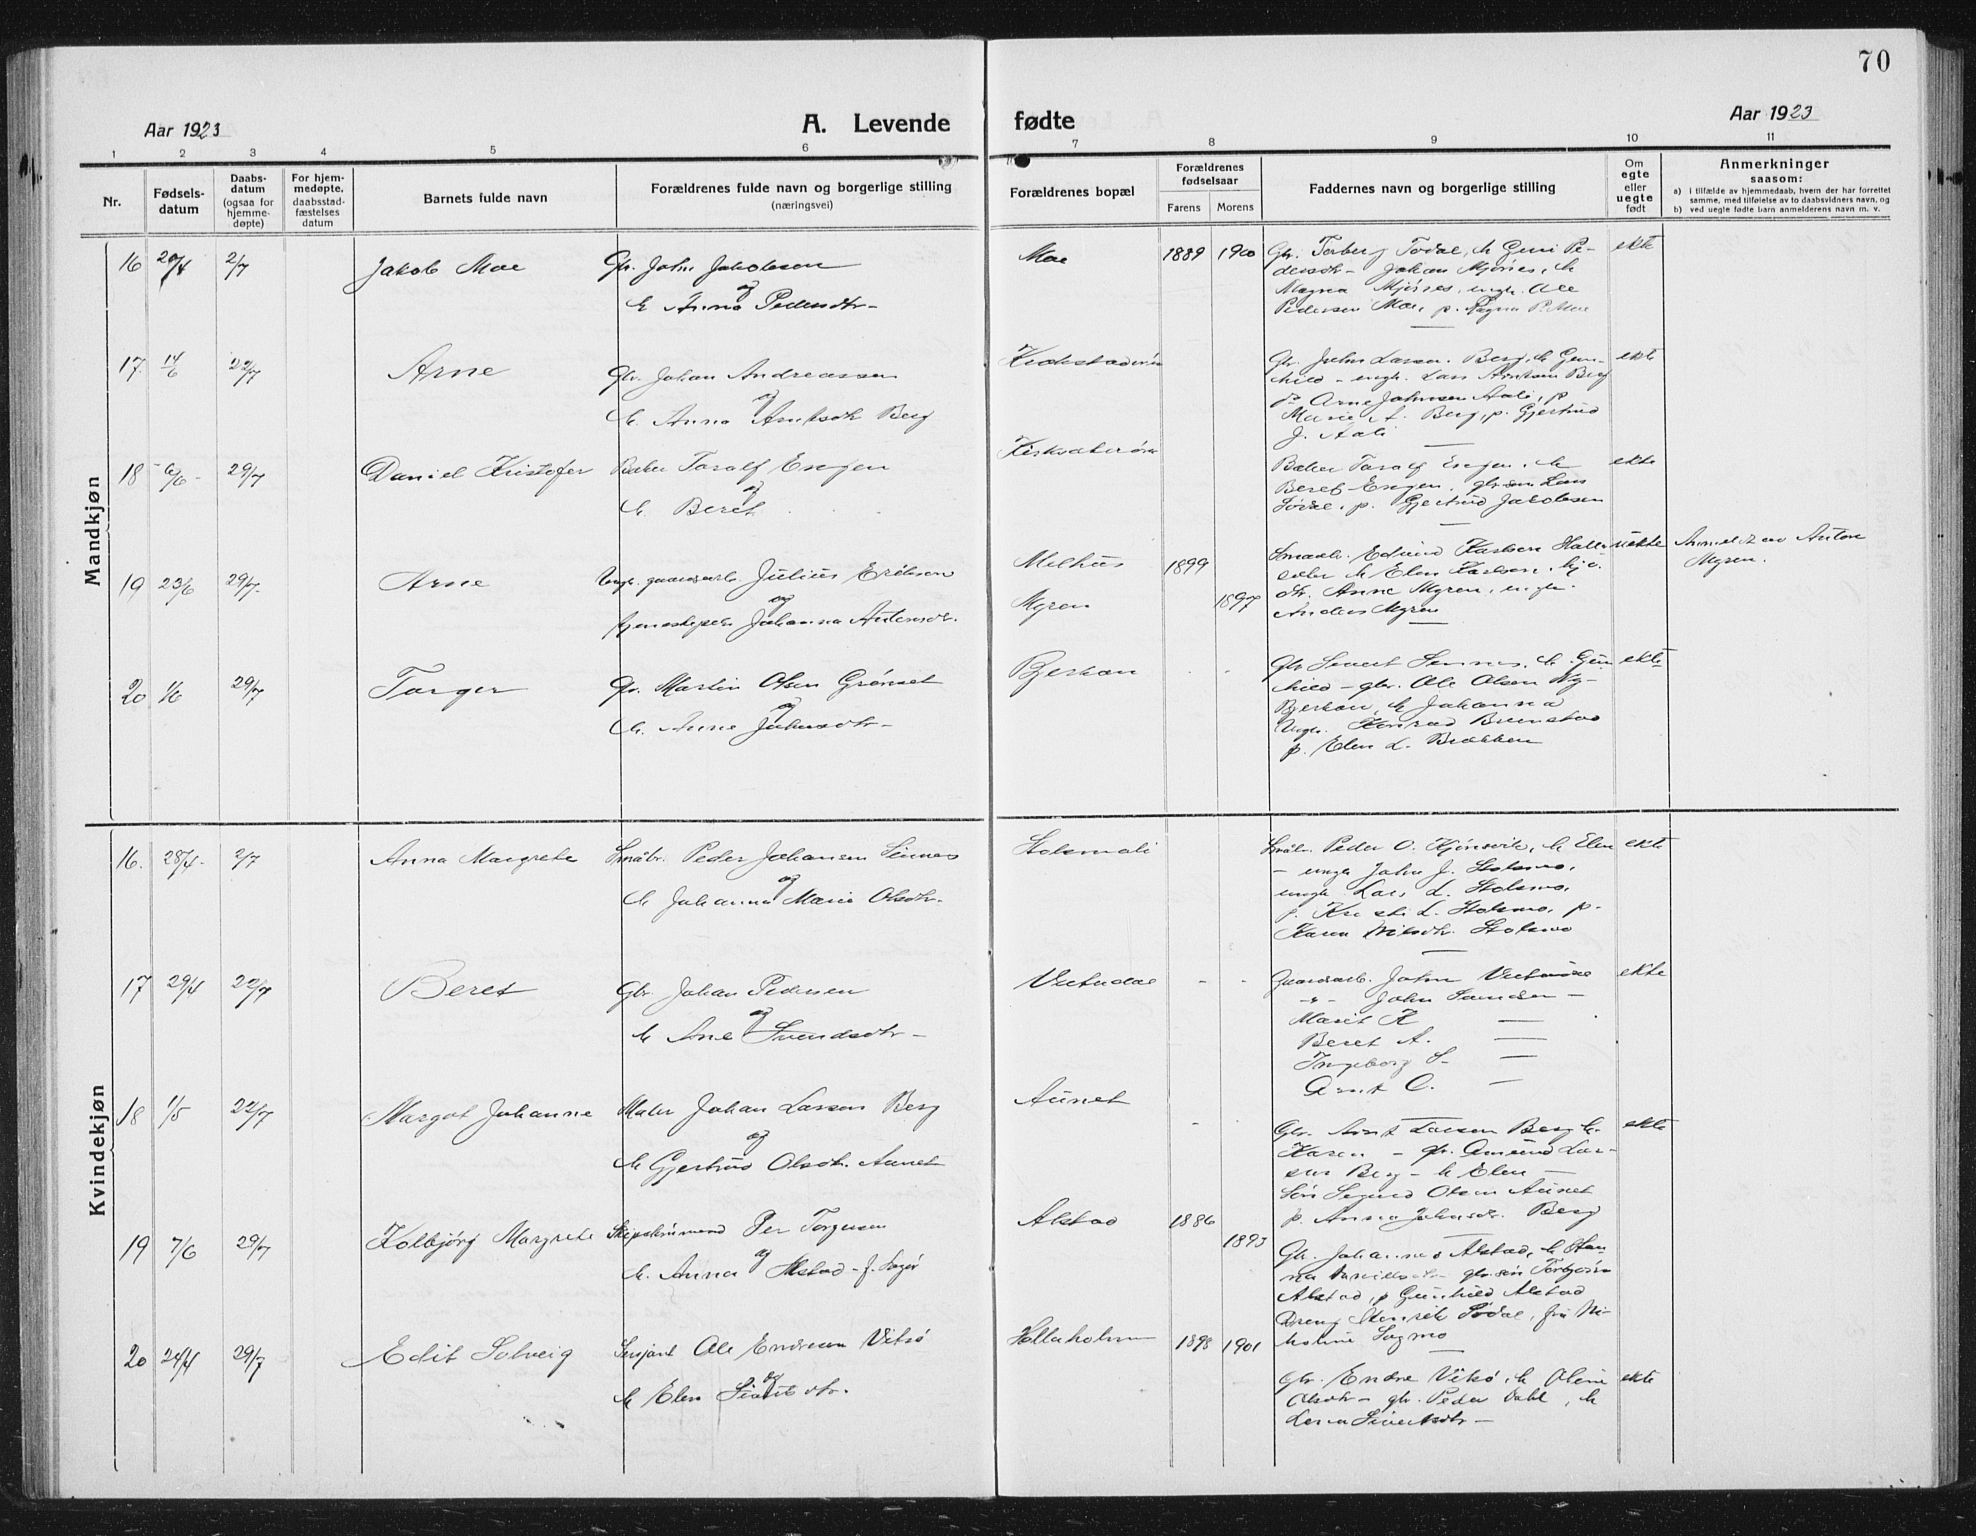 70
Aar 1923
A. Levende fødte
Aar 1923
1 2 3 4 5 6 7 8 9 10 11
Nr.
Fødsels-
datum
Daabs-
datum
(ogsaa for
hjemme-
døpte)
For hjem-
medøpte,
daabsstad-
fæstelses
datum
Barnets fulde navn
Forældrenes fulde navn og borgerlige stilling
(næringsvei)
Forældrenes bopæl
Forældrenes
fødselsaar
Farens Morens
Faddernes navn og borgerlige stilling
Om
egte
eller
uegte
født
Anmerkninger
saasom:
a) i tilfælde av hjemmedaab, hvem der har forrettet
samme, med tilføielse av to daabsvidners navn, og
b) ved uegte fødte barn anmelderens navn m. v.
Mandkjøn
16 2/7 Jakob Moe Gbr. John Jakobsen
og
h. Anna Pedersdtr.
Moe 1889 1900
Gbr. Torberg Todal, h. Guri Pe-
dersdtr – Johan Mjønes, h.
Magna Mjønes, ungk. Ole
Pedersen Moe, p. Magna P. Moe
ekte
17. 14/6 22/7 Arne Gbr. Johan Andreassen
og
h. Anna Arntsdtr Berg
Gbr. John Larsen Berg, h. Gun-
hild – ungk. Lars Arntsen Berg
do Arne Johnsen Aali, p.
Marie A. Berg, p. Gjertrud
J. Aali
ekte
18 6/6 29/7 Daniel Kristofer Baker Toralf Engen
og
h. Beret
Baker Toralf Engen, h.
Beret Engen, gbrsøn Lars
p. Gjertrud Jakobsen
ekte
19 23/6 29/7 Arne Ungk. gaardsarb. Julius Eriksen
og
Johanna Antonsdtr.
Melhus 1899
Myren 1897
Smaabr. Edvind Karlsen
h. Elen Karlsen,
Anne Myren, ungk.
Anders Myren
uekte
Anmeldt av Anton
Myren.
20 1/6 29/7 Torger Gbr. Martin Olsen Grønset
og
h. Anne Johnsdtr –
Bjerkan
Gbr Sivert h. Gun-
hild – gbr. Ole Olsen Ny-
Bjerkan, h. Johanna
Ungk. Konrad
p. Elen L. Brækken
ekte
Kvindekjøn
16. 28/4 2/7 Anna Margrete Småbr. Peder Johansen Sinnes
og
h. Johanna Marie Olsdtr.
Stolsmoli
Småbr. Peder O. Kjønsvik, h. Elen
– ungk John J. Stolsmo,
ungk Lars L. Stolsmo,
p. Kristi L. Stolsmo, p.
Karen Nilsdtr. Stolsmo
ekte
17 29/4 22/7 Beret Gbr. Johan Pedersen
og
h. Ane Svendsdtr –
Vutudal
Gaardsarb. John Vutudal
– " – John Samdsen –
Marit K –
Beret A. –
Ingeborg S –
Arnt O. –
ekte
18 1/5 22/7 Margot Johanne Maler Johan Larsen Berg
og
h. Gjertrud Olsdtr. Aunet
Aunet
Gbr. Arnt Larsen Berg h.
Karen – gbr. Amund Lar-
sen Berg – h. Elen –
Olsen Aunet
p. Anna Johnsdtr. Berg
ekte
19 7/6 29/7 Kolbjørg Margrete Skipstømmermand Per Torgersen
og
h. Anna Alstad – f.
Alstad 1886 1893
Gbr. Johannes Alstad, h.
gbr.søn Torbjørn
Alstad, p Gunhild Alstad
Dreng Henrik Fru Ni-
koline Sagmo
20 24/4 29/7 Edit Solveig Sersjant Ole Endresen Vitsø
og
h Elen Sivertsdtr.
Hollaholmen 1898 1901
Gbr. Endre Vitsø, h. Oline
Olsdtr – gbr. Peder Dahl, h.
Sivertsdtr –
ekte